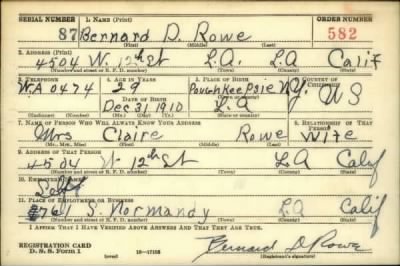 SERIAL NUMBER 1. NAME (Print) ORDER NUMBER
87 Bernard D. Rowe 582
(First) (Middle) (Last)
2. ADDRESS (Print)
4504 W. 12th St L.A. L.A Calif
(Number and street or R. F. D. number) (Town) (County) (State)
3. TELEPHONE 4. AGE IN YEARS 5. PLACE OF BIRTH 6. COUNTRY OF CITIZENSHIP
W.A 0474 29 Poughkeepsie N.Y. U S
DATE OF BIRTH
Dec 31 1910 L.A
7. NAME OF PERSON WHO WILL ALWAYS KNOW YOUR ADDRESS 8. RELATIONSHIP OF THAT PERSON
Mrs Claire Rowe Wife
(Mr., Mrs., Miss) (First) (Middle) (Last)
9. ADDRESS OF THAT PERSON
4504 W 12th St L A Calif
(Number and street or R. F. D. number) (Town) (County) (State)
10. EMPLOYER'S NAME
Self
11. PLACE OF EMPLOYMENT OR BUSINESS
S. Normandy L A Calif
(Number and street or R. F. D. number) (Town) (County) (State)
I AFFIRM THAT I HAVE VERIFIED ABOVE ANSWERS AND THAT THEY ARE TRUE.
REGISTRATION CARD
D. S. S. Form 1 16—17105 Bernard D Rowe
(over) (Registrant's signature)